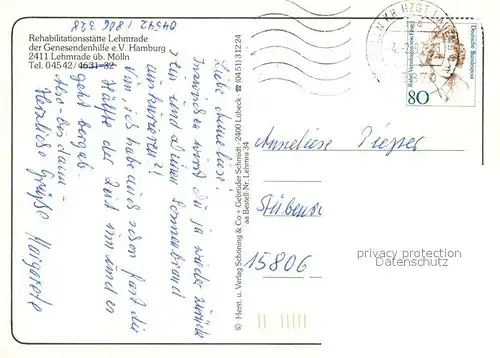 04542 / 886 328
Rehabilitationsstätte Lehmrade
der Genesendenhilfe e.V. Hamburg
2411 Lehmrade üb. Mölln
Tel. 04542/ 4631-32
Liebe Anneliese!
Inzwischen wirst Du ja wieder zurück
sein und Deinen Sonnenbrand
auskurieren?!
Nun, ich habe auch schon fast die
Hälfte der Zeit um und es
geht bergab.
Also bis dann
Herzliche Grüße Margarete
© Herst. u. Verlag Schöning & Co + Gebrüder Schmidt · 2400 Lübeck ☎ (0451) 31224
aa Bestell-Nr. Lehmra 34
Deutsche Bundespost
80
Anneliese
15806
privacy protection
Datenschutz